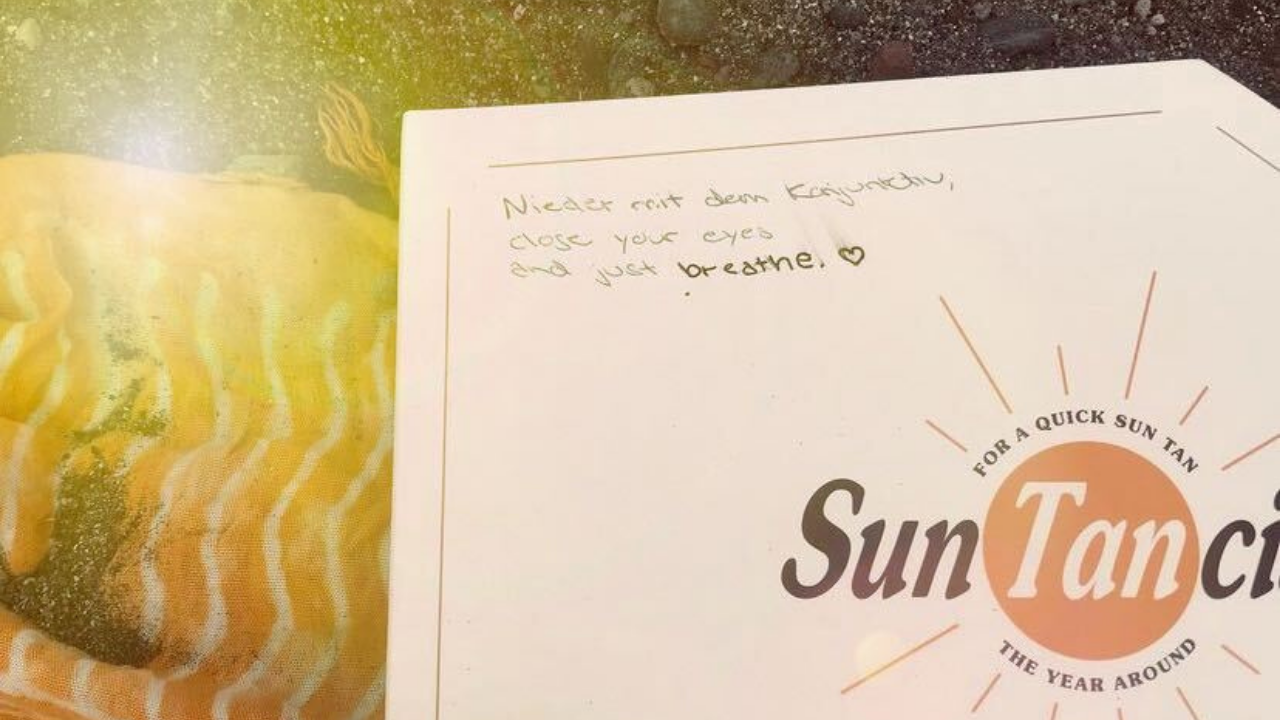 Nieder mit dem Konjunktiv,
close your eyes
and just breathe. ♡
FOR A QUICK SUN TAN
SunTanci
THE YEAR AROUND